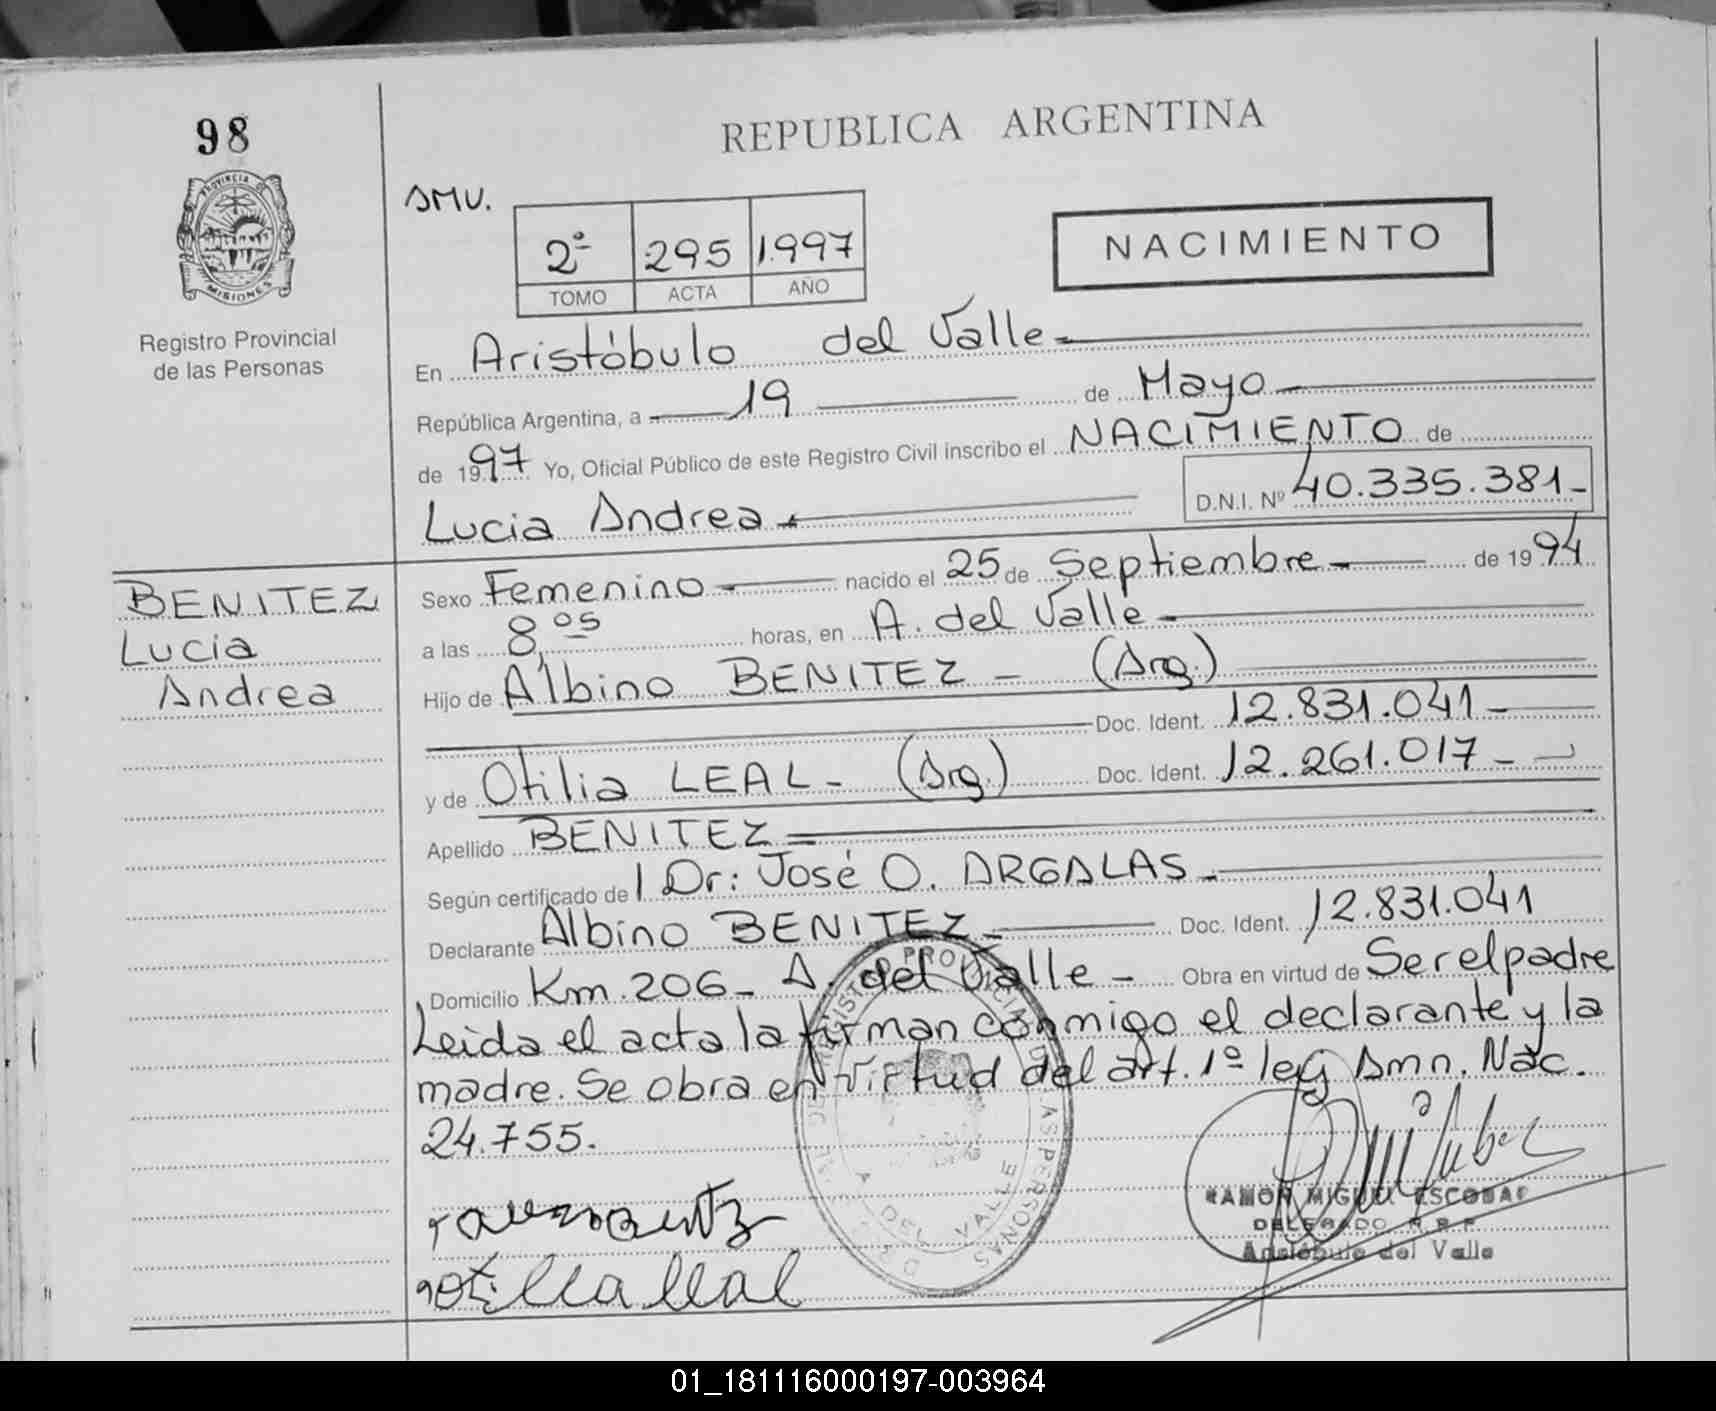 98
REPUBLICA ARGENTINA
PROVINCIA DE
MISIONES
Registro Provincial
de las Personas
SMV.
2º 295 1.997
TOMO ACTA AÑO
NACIMIENTO
En Aristóbulo del Valle
República Argentina, a 19 de Mayo
de 1997 Yo, Oficial Público de este Registro Civil inscribo el NACIMIENTO de
Lucia Andrea D.N.I. Nº 40.335.381-
BENITEZ
Lucia
Andrea
Sexo Femenino nacido el 25 de Septiembre de 1994
a las 8,05 horas, en A. del Valle
Hijo de Albino BENITEZ - (Arg.)
Doc. Ident. 12.831.041-
y de Otilia LEAL- (Arg.) Doc. Ident. 12.261.017-
Apellido BENITEZ
Según certificado de Dr: José O. ARGALAS
Declarante Albino BENITEZ Doc. Ident. 12.831.041
Domicilio Km.206- A. del Valle - Obra en virtud de Ser el padre
Leida el acta la firman conmigo el declarante y la
madre. Se obra en virtud del art. 1º ley Amn. Nac.
24.755.
REGISTRO PROVINCIAL DE LAS PERSONAS
A. DEL VALLE
RAMON MIGUEL ESCOBAR
DELEGADO R.R.P.
Aristóbulo del Valle
otilia leal
01_181116000197-003964